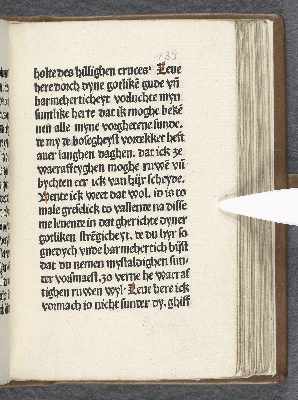 135
holte des hillighen cruces· Leue
here dorch dyne gotlikē gude vñ
barmeherticheyt vorluchte myn
suntlike herte dat ik moghe bekē
nen alle myne vorghetene sunde.
de my de bosegheyst vordekket heft
auer langhen daghen. dat ick ze
waraftyghen moghe ruwē vñ
bychten eer ick van hijr scheyde.
Wente ick weet dat wol. id is to
male greselick to vallende na disse
me leuende in dat gherichte dyner
gotliken strēgicheyt. de du hyr so
gnedych vnde barmehertich bijst
dat du nemen mysdadighen sun-
der vorsmaest. zo verne he warraf
tighen ruwen wyl· Leue here ick
vormach io nicht sunder dy. ghiff